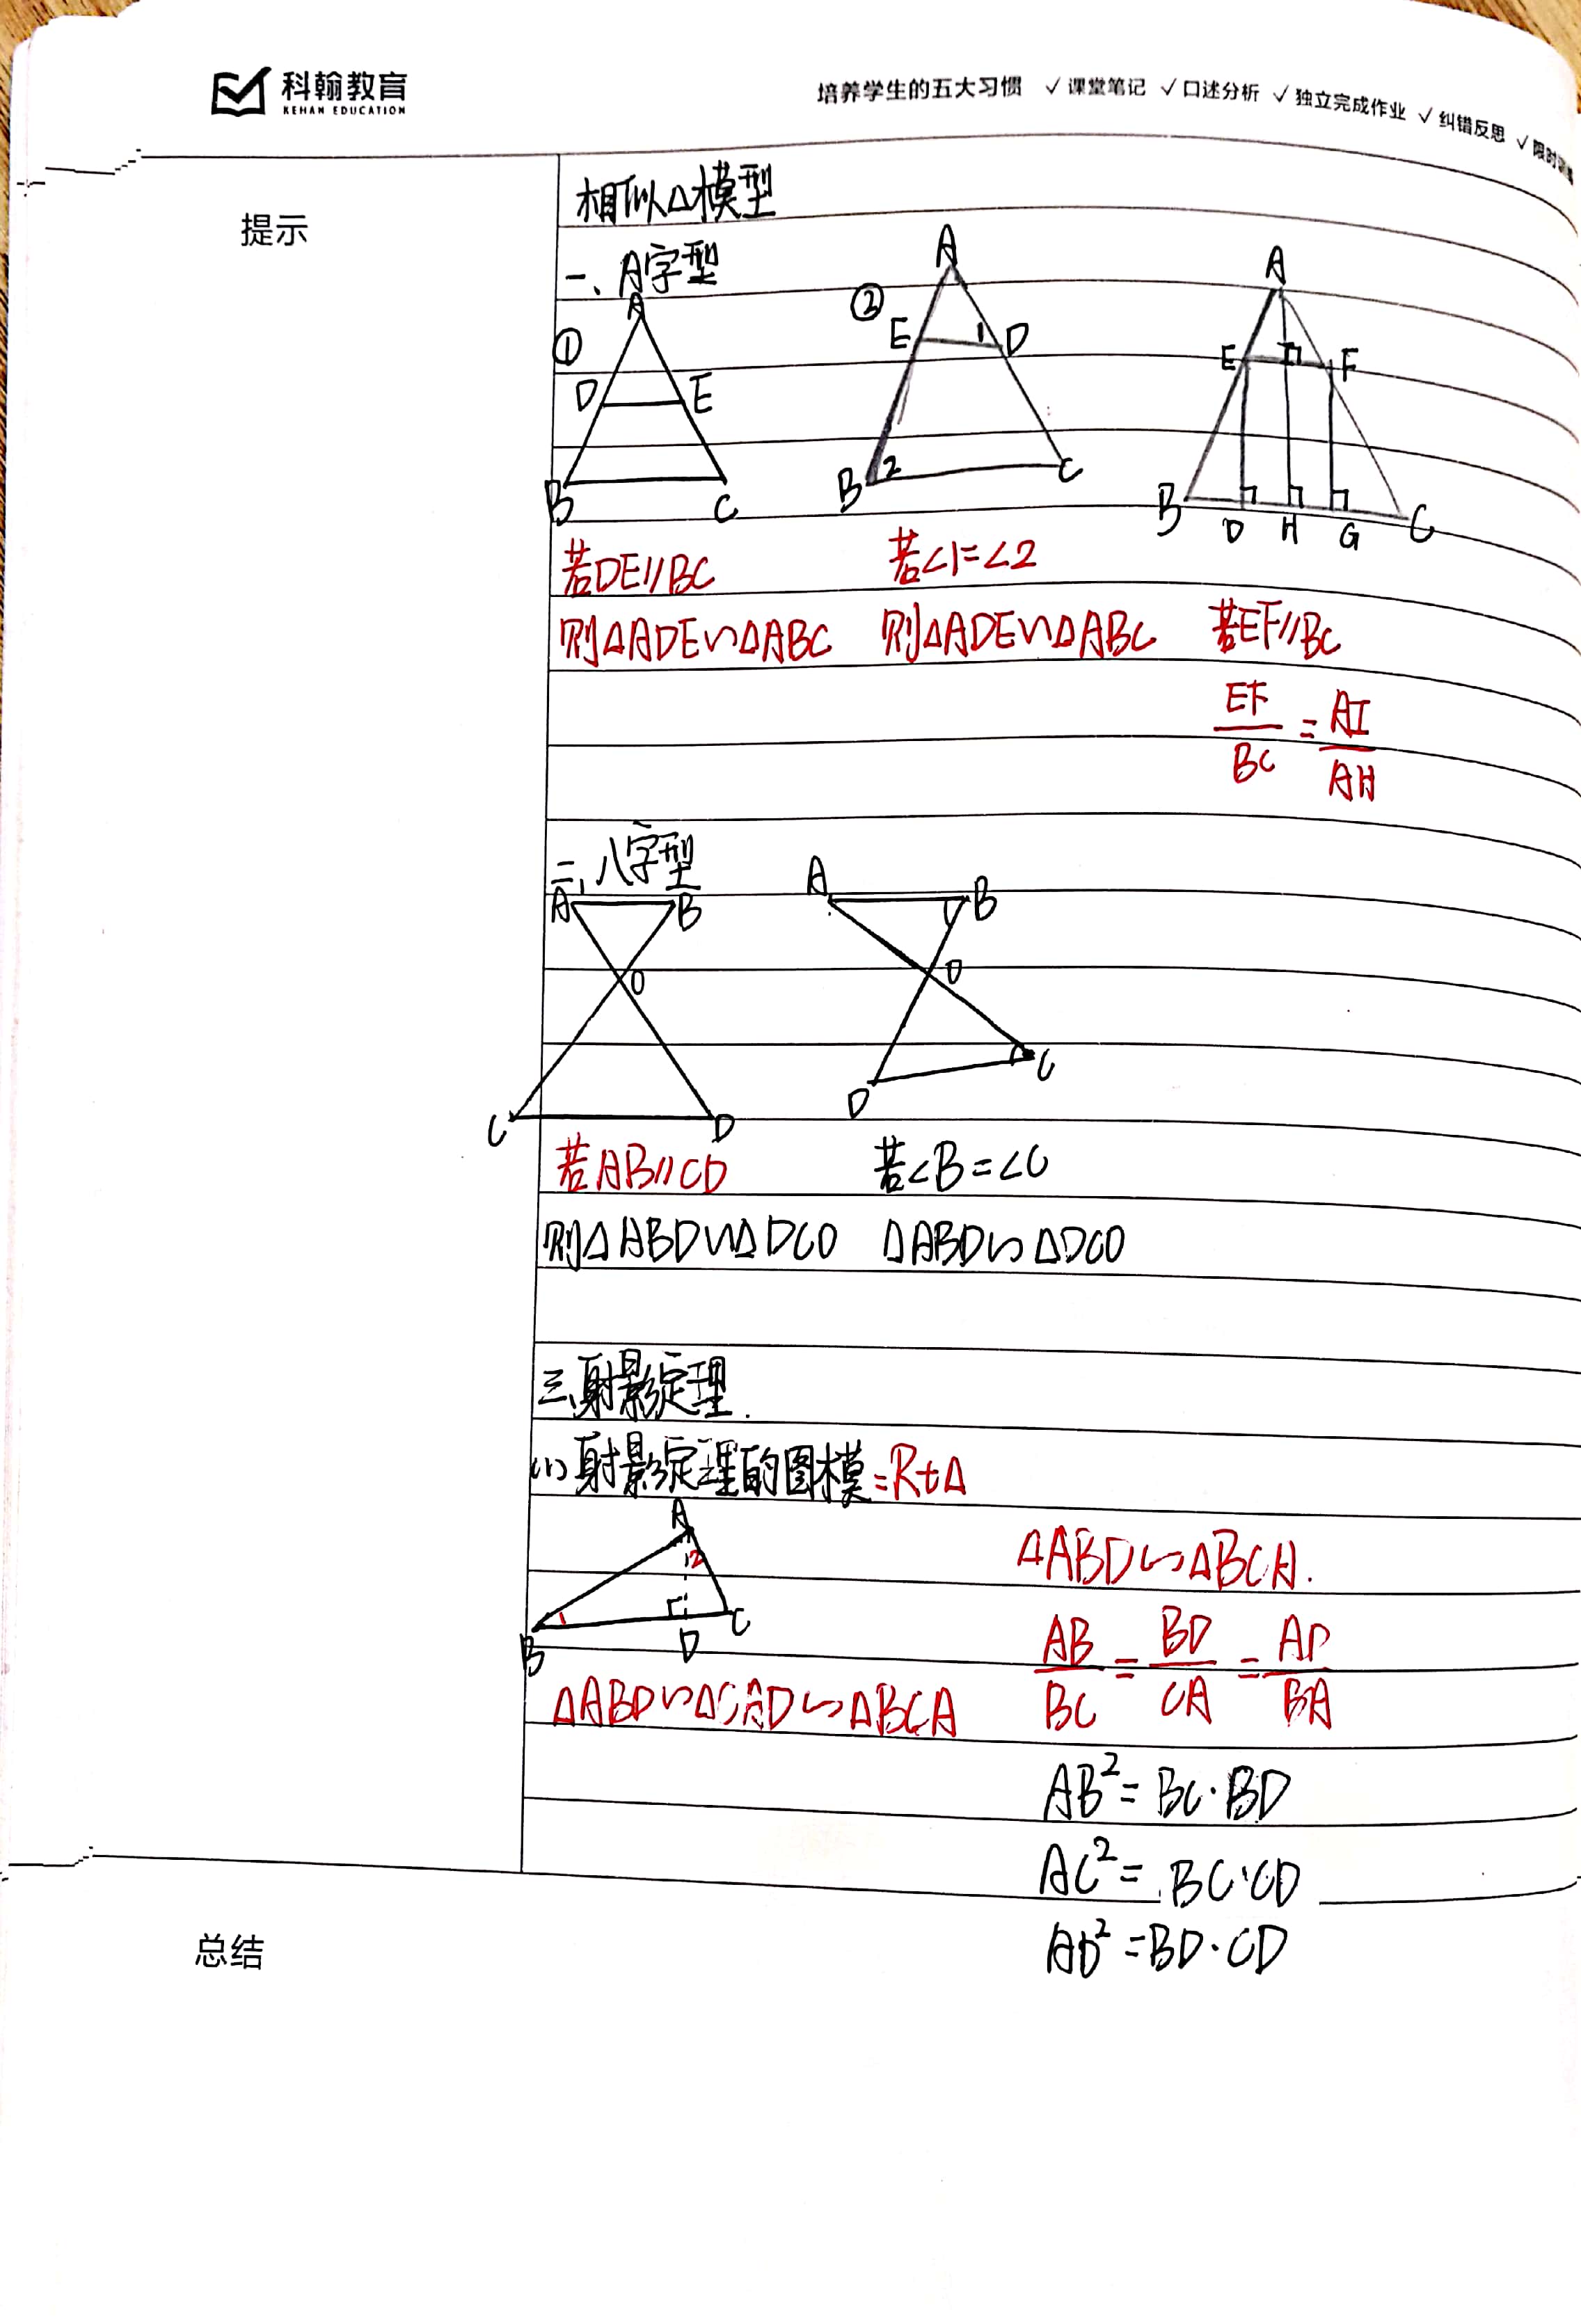 科翰教育
KEHAN EDUCATION
培养学生的五大习惯 ✓课堂笔记 ✓口述分析 ✓独立完成作业 ✓纠错反思 ✓限时
提示
相似△模型
一、A字型
① A D E B C
② A E 1 D B 2 C
A E I F B D H G C
若DE//BC 若∠1=∠2
则△ADE∽△ABC 则△ADE∽△ABC 若EF//BC
EF/BC = AI/AH
二、八字型
A B O C D
A B O C D
若AB//CD 若∠B=∠C
则△ABO∽△DCO △ABO∽△DCO
三、射影定理.
(1)射影定理的图模=Rt△
A 2 B 1 D C
△ABD∽△BCA.
AB/BC = BD/CA = AD/BA
△ABD∽△CAD∽△BCA
AB²=BC·BD
AC²=BC·CD
AD²=BD·CD
总结